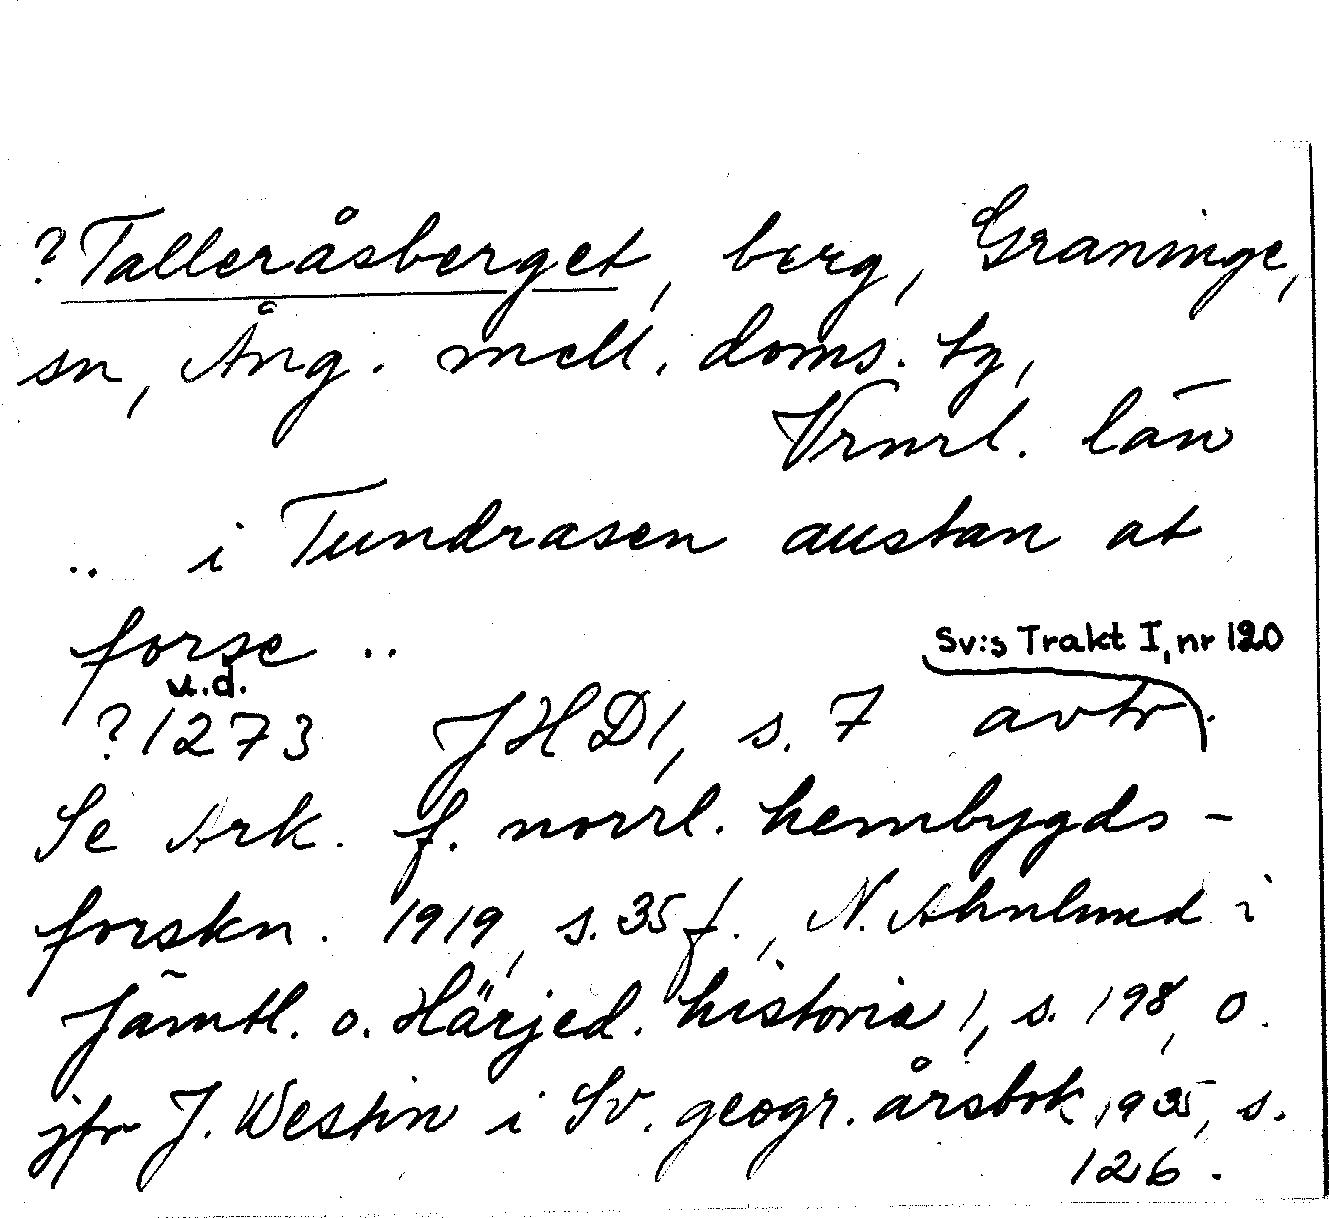 ?Talleråsberget, berg, Graninge,
sn, Ång. mell. doms. tg,
Vrnrl. län
.. i Tundrasen austan at
forse ..
Sv:s Trakt I, nr 120
u.d.
?1273 JHD1, s. 7 avtr.
Se Ark. f. norrl. hembygds-
forskn. 1919, s. 35 f., N. Ahnlund i
Jämtl. o. Härjed. historia 1, s. 198, o.
jfr J. Westin i Sv. geogr. årsbok 1935, s.
126.